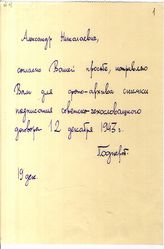 1
Александр Николаевич,
согласно Вашей просьбе, направляю
Вам для фото-архива снимки
подписания советско-чехословацкого
договора 12 декабря 1943 г.
19 дек.